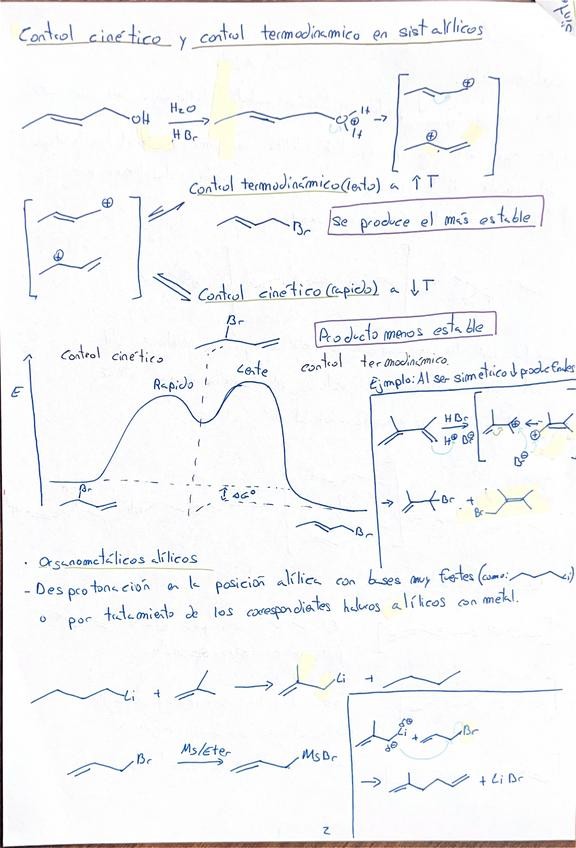 Control cinético y control termodinamico en sist alílicos
OH H₂O
HBr
O⊕ H
H
⊕
⊕
Control termodinámico (lento) a ↑T
⊕
⊕
Br
Se produce el más estable
Control cinético (rapido) a ↓T
Br
Producto menos estable
Control cinético
control termodinámico.
Rapido
Lente
E
Ejemplo: Al ser simétrico ↓
HBr
H⊕ Br⊖
⊕
⊕
Br⊖
ΔG°
Br
Br
→ Br + Br
· Organometálicos alílicos
- Desprotonación en la posición alílica con bases muy fuertes (como: Li)
o por tratamiento de los correspondientes haluros alílicos con metal.
Li + → Li +
Br Ms/Eter MsBr
δ⊕
Li + Br
δ⊖
→ + LiBr
2